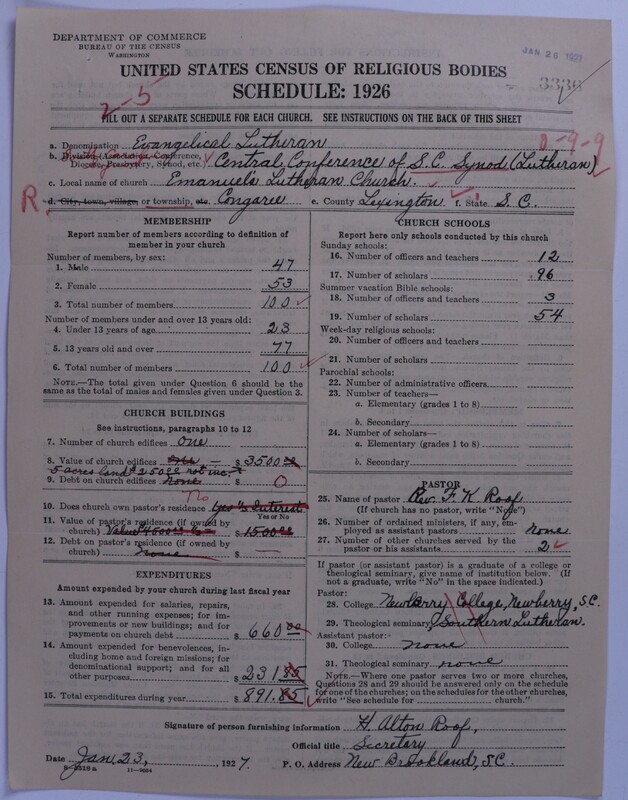 DEPARTMENT OF COMMERCE
BUREAU OF THE CENSUS
WASHINGTON
JAN 26 1927
UNITED STATES CENSUS OF RELIGIOUS BODIES
3336
SCHEDULE: 1926
2-5
FILL OUT A SEPARATE SCHEDULE FOR EACH CHURCH. SEE INSTRUCTIONS ON THE BACK OF THIS SHEET
a. Denomination Evangelical Lutheran
b. Division (Association, Conference, Diocese, Presbytery, Synod, etc.) Central Conference of S.C. Synod (Lutheran)
c. Local name of church Emanuel's Lutheran Church.
R.
d. City, town, village, or township, etc. Congaree e. County Lexington f. State S. C.
MEMBERSHIP
Report number of members according to definition of member in your church
Number of members, by sex:
1. Male 47
2. Female 53
3. Total number of members 100
Number of members under and over 13 years old:
4. Under 13 years of age 23
5. 13 years old and over 77
6. Total number of members 100
NOTE.—The total given under Question 6 should be the same as the total of males and females given under Question 3.
CHURCH BUILDINGS
See instructions, paragraphs 10 to 12
7. Number of church edifices one
8. Value of church edifices $3500
5 acres land $250 not inc.
9. Debt on church edifices none $ 0
no
10. Does church own pastor's residence Yes ⅓ Interest
Yes or No
11. Value of pastor's residence (if owned by church) Value $4500 $1500
12. Debt on pastor's residence (if owned by church) none $ —
EXPENDITURES
Amount expended by your church during last fiscal year
13. Amount expended for salaries, repairs, and other running expenses; for improvements or new buildings; and for payments on church debt $ 660 00
14. Amount expended for benevolences, including home and foreign missions; for denominational support; and for all other purposes $ 231.85
15. Total expenditures during year $ 891.85
CHURCH SCHOOLS
Report here only schools conducted by this church
Sunday schools:
16. Number of officers and teachers 12
17. Number of scholars 96
Summer vacation Bible schools:
18. Number of officers and teachers 3
19. Number of scholars 54
Week-day religious schools:
20. Number of officers and teachers
21. Number of scholars
Parochial schools:
22. Number of administrative officers
23. Number of teachers—
a. Elementary (grades 1 to 8)
b. Secondary
24. Number of scholars—
a. Elementary (grades 1 to 8)
b. Secondary
PASTOR
25. Name of pastor Rev. F. K. Roof
(If church has no pastor, write "None")
26. Number of ordained ministers, if any, employed as assistant pastors none
27. Number of other churches served by the pastor or his assistants 2
If pastor (or assistant pastor) is a graduate of a college or theological seminary, give name of institution below. (If not a graduate, write "No" in the space indicated.)
Pastor:
28. College Newberry College, Newberry, S.C.
29. Theological seminary Southern Lutheran.
Assistant pastor:
30. College none
31. Theological seminary none
NOTE.—Where one pastor serves two or more churches, Questions 28 and 29 should be answered only on the schedule for one of the churches; on the schedules for the other churches, write "See schedule for church."
Signature of person furnishing information H. Alton Roof,
Official title Secretary
Date Jan, 23, 1927. P. O. Address New Brookland, S.C.
11—9684